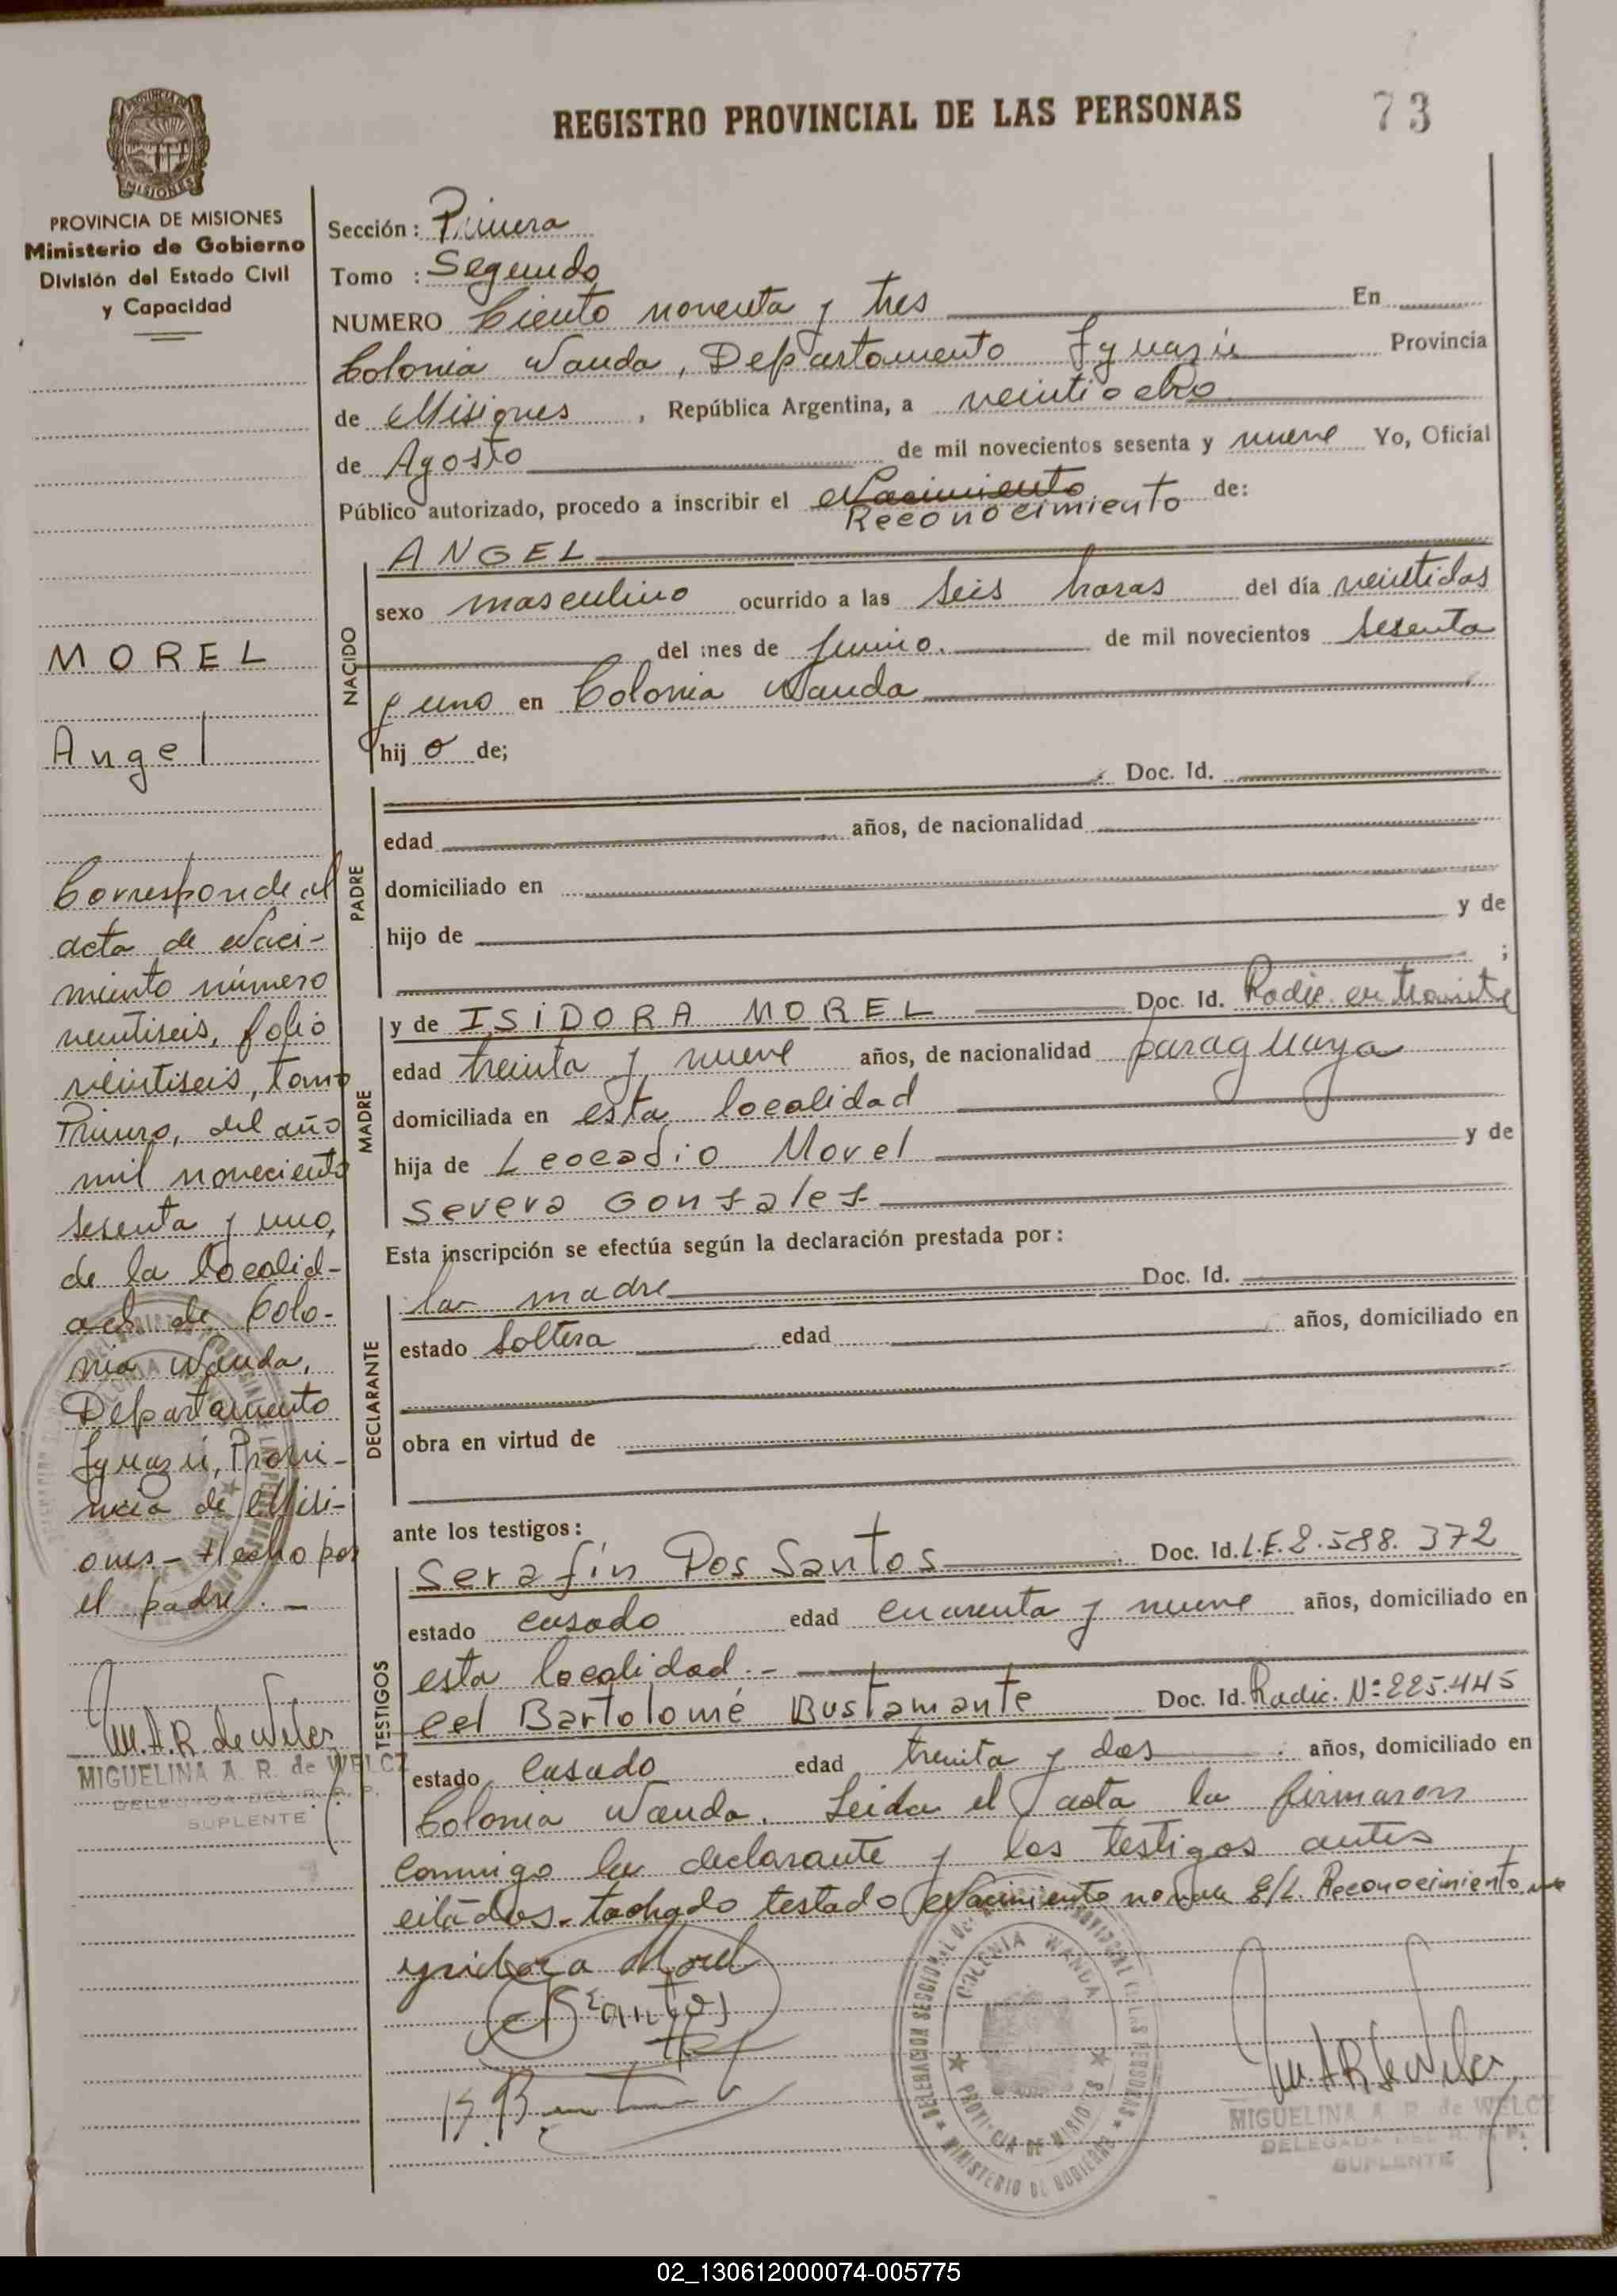 REGISTRO PROVINCIAL DE LAS PERSONAS
73
PROVINCIA DE MISIONES
MISIONES
PROVINCIA DE MISIONES
Ministerio de Gobierno
División del Estado Civil
y Capacidad
MOREL
Angel
Corresponde al
acta de Naci-
miento número
veintiseis, folio
veintiseis, tomo
Primero, del año
mil noveciento
sesenta y uno,
de la localid-
ad de Colo-
nia Wanda,
Departamento
Iguazú, Provi-
ncia de Misi-
ones - Hecho por
el padre. -
M.A.R. de Welcz
MIGUELINA A. R. de WELCZ
DELEGADA DEL R. P. P.
SUPLENTE
Sección: Primera
Tomo : Segundo
NUMERO Ciento noventa y tres En
Colonia Wanda, Departamento Iguazú Provincia
de Misiones, República Argentina, a veintiocho
de Agosto de mil novecientos sesenta y nueve Yo, Oficial
Público autorizado, procedo a inscribir el Nacimiento de:
Reconocimiento
NACIDO
ANGEL
sexo masculino ocurrido a las seis horas del día veintidos
del mes de Junio. de mil novecientos sesenta
y uno en Colonia Wanda
hij o de;
PADRE
Doc. Id.
edad años, de nacionalidad
domiciliado en
hijo de y de
;
MADRE
y de ISIDORA MOREL Doc. Id. Radic. en tramite
edad treinta y nueve años, de nacionalidad paraguaya
domiciliada en esta localidad
hija de Leocadio Morel y de
Severa Gonzalez
Esta inscripción se efectúa según la declaración prestada por:
DECLARANTE
la madre Doc. Id.
estado soltera edad años, domiciliado en
obra en virtud de
ante los testigos:
TESTIGOS
Serafín Dos Santos Doc. Id. L.E. 2.588.372
estado casado edad cuarenta y nueve años, domiciliado en
esta localidad.-
eel Bartolomé Bustamante Doc. Id. Radic. Nº 225.445
estado casado edad treinta y dos años, domiciliado en
Colonia Wanda. Leida el acta la firmaron
conmigo la declarante y los testigos antes
citados. tachado testado Nacimiento no vale E/L. Reconocimiento
ysidora Morel
Santos
COLONIA WANDA
PROVINCIA DE MISIONES
MINISTERIO DE GOBIERNO
M.A.R. de Welcz
MIGUELINA A. R. de WELCZ
DELEGADA DEL R. P. P.
SUPLENTE
02_130612000074-005775